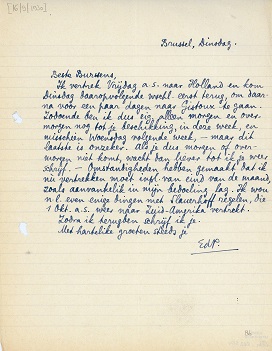 [16/9/1930]
Brussel, Dinsdag.
Beste Burssens,
Ik vertrek Vrijdag a.s. naar Holland en kom
Dinsdag daaropvolgende wschl. eerst terug, om daar-
na voor een paar dagen naar Gistoux te gaan.
Zodoende ben ik dus eig. alleen morgen en over-
morgen nog tot je beschikking, in deze week, en
misschien Woensdag volgende week, — maar dit
laatste is onzeker. Als je dus morgen of over-
morgen niet komt, wacht dan liever tot ik je weer
schrijf. — Omstandigheden hebben gemaakt dat ik
nu vertrekken moet inpl. van eind van de maand,
zoals aanvankelijk in mijn bedoeling lag. Ik wou
n.l. even enige dingen met Slauerhoff regelen, die
1 Okt. a.s. weer naar Zuid-Amerika vertrekt.
Zodra ik terugben schrijf ik je.
Met hartelike groeten steeds je
EdP.